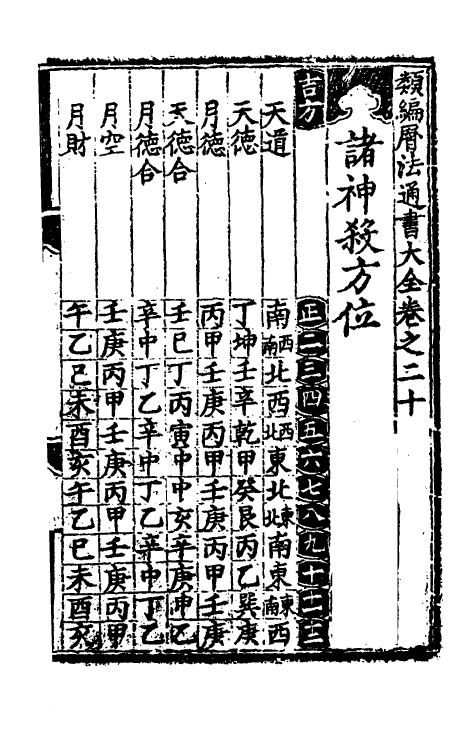 類編曆法通書大全卷之二十
諸神殺方位
吉方 正二三四五六七八九十十一十二
天道 南西南北西西北東北東北南東東南西
天德 丁坤壬辛乾甲癸艮丙乙巽庚
月德 丙甲壬庚丙甲壬庚丙甲壬庚
天德合 壬巳丁丙寅中中亥辛庚申乙
月德合 辛中丁乙辛中丁乙辛中丁乙
月空 壬庚丙甲壬庚丙甲壬庚丙甲
月財 午乙巳未酉亥午乙巳未酉亥